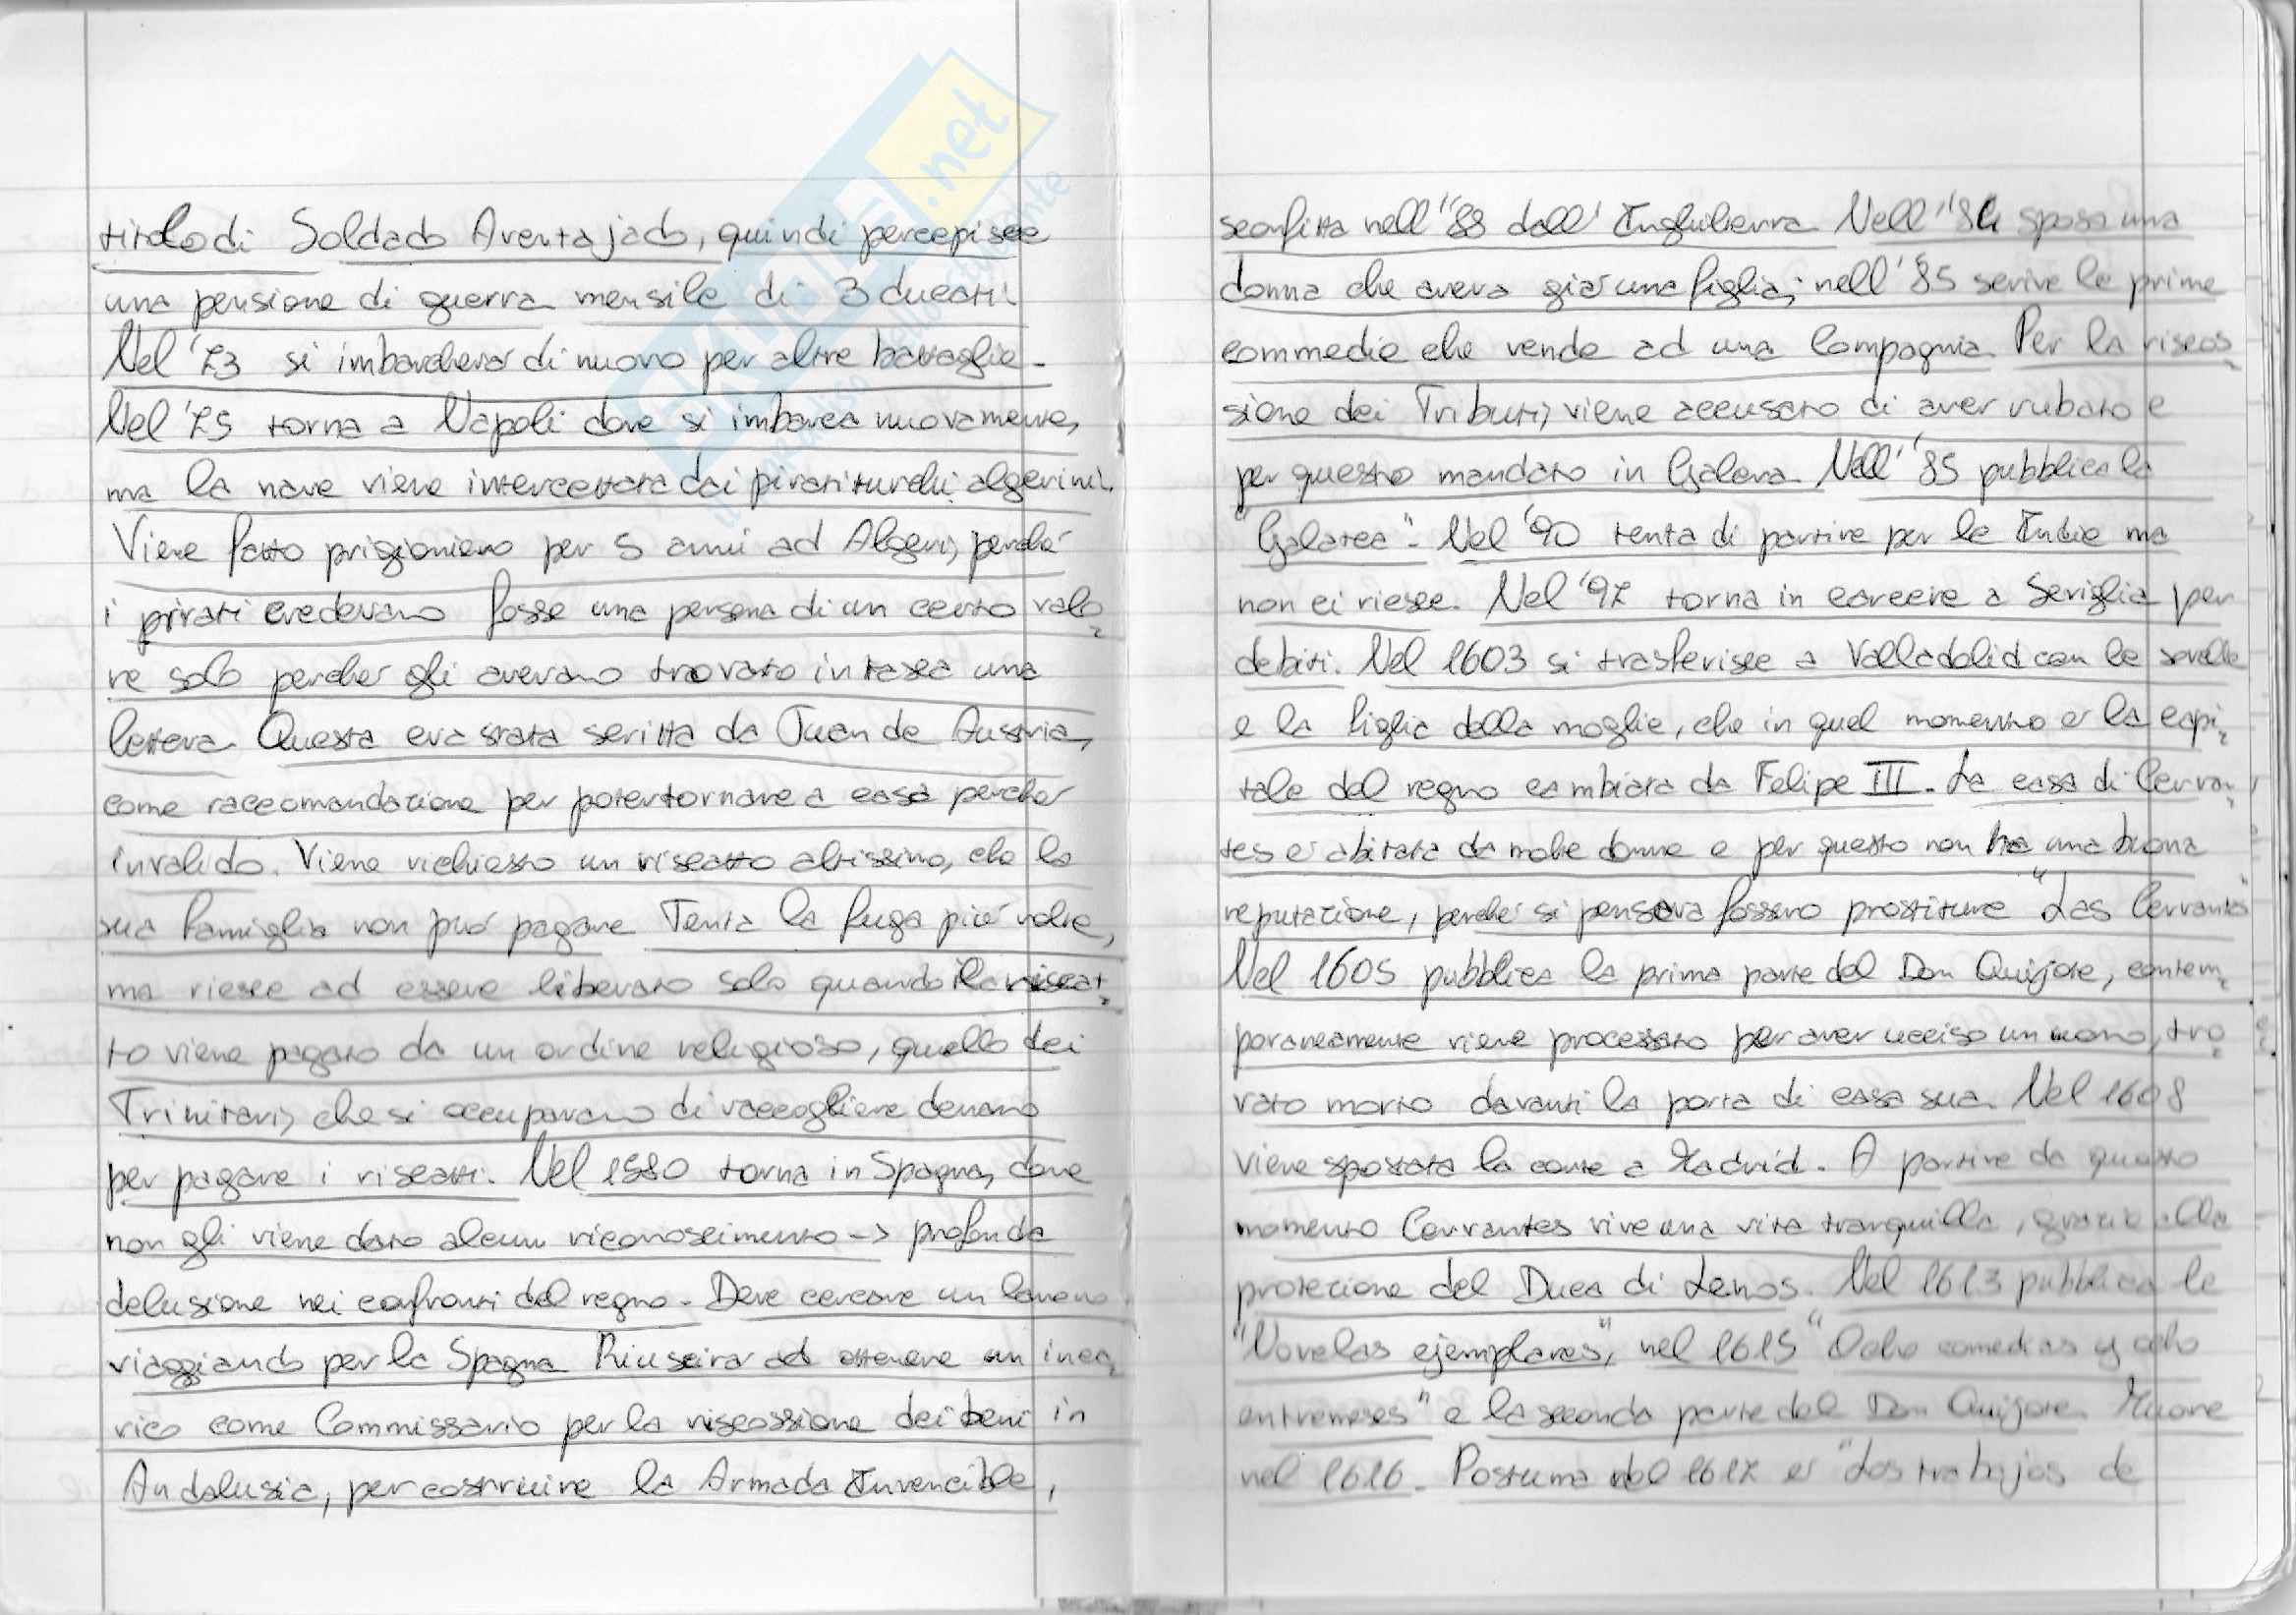 titolo di Soldado Aventajado, quindi percepisce
una pensione di guerra mensile di 3 ducati.
Nel '73 si imbarcherà di nuovo per altre battaglie.
Nel '75 torna a Napoli dove si imbarca nuovamente,
ma la nave viene intercettata dai pirati turchi algerini.
Viene fatto prigioniero per 5 anni ad Algeri, perché
i pirati credevano fosse una persona di un certo valo
re solo perché gli avevano trovato in tasca una
lettera. Questa era stata scritta da Juan de Austria,
come raccomandazione per poter tornare a casa perché
invalido. Viene richiesto un riscatto altissimo, che la
sua famiglia non può pagare. Tenta la fuga più volte,
ma riesce ad essere liberato solo quando il riscat
to viene pagato da un ordine religioso, quello dei
Trinitari, che si occupavano di raccogliere denaro
per pagare i riscatti. Nel 1580 torna in Spagna, dove
non gli viene dato alcun riconoscimento -> profonda
delusione nei confronti del regno. Deve cercare un lavoro
viaggiando per la Spagna. Riuscirà ad ottenere un inca
rico come Commissario per la riscossione dei beni in
Andalusia, per costruire la Armada Invencible,
sconfitta nell''88 dall'Inghilterra. Nell''84 sposa una
donna che aveva già una figlia; nell'85 scrive le prime
commedie che vende ad una Compagnia. Per la riscos
sione dei Tributi, viene accusato di aver rubato e
per questo mandato in Galera. Nell''85 pubblica la
"Galatea". Nel '90 tenta di partire per le Indie ma
non ci riesce. Nel '97 torna in carcere a Seviglia per
debiti. Nel 1603 si trasferisce a Valladolid con le sorelle
e la figlia della moglie, che in quel momento è la capi
tale del regno cambiata da Felipe III. La casa di Cervan
tes è abitata da molte donne e per questo non ha una buona
reputazione, perché si pensava fossero prostitute "Las Cervantas"
Nel 1605 pubblica la prima parte del Don Quijote, contem
poraneamente viene processato per aver ucciso un uomo, tro
vato morto davanti la porta di casa sua. Nel 1608
viene spostata la corte a Madrid. A partire da questo
momento Cervantes vive una vita tranquilla, grazie alla
protezione del Duca di Lemos. Nel 1613 pubblica le
"Novelas ejemplares", nel 1615 "Ocho comedias y ocho
entremeses" e la seconda parte del Don Quijote. Muore
nel 1616. Postuma nel 1617 è "Los trabajos de